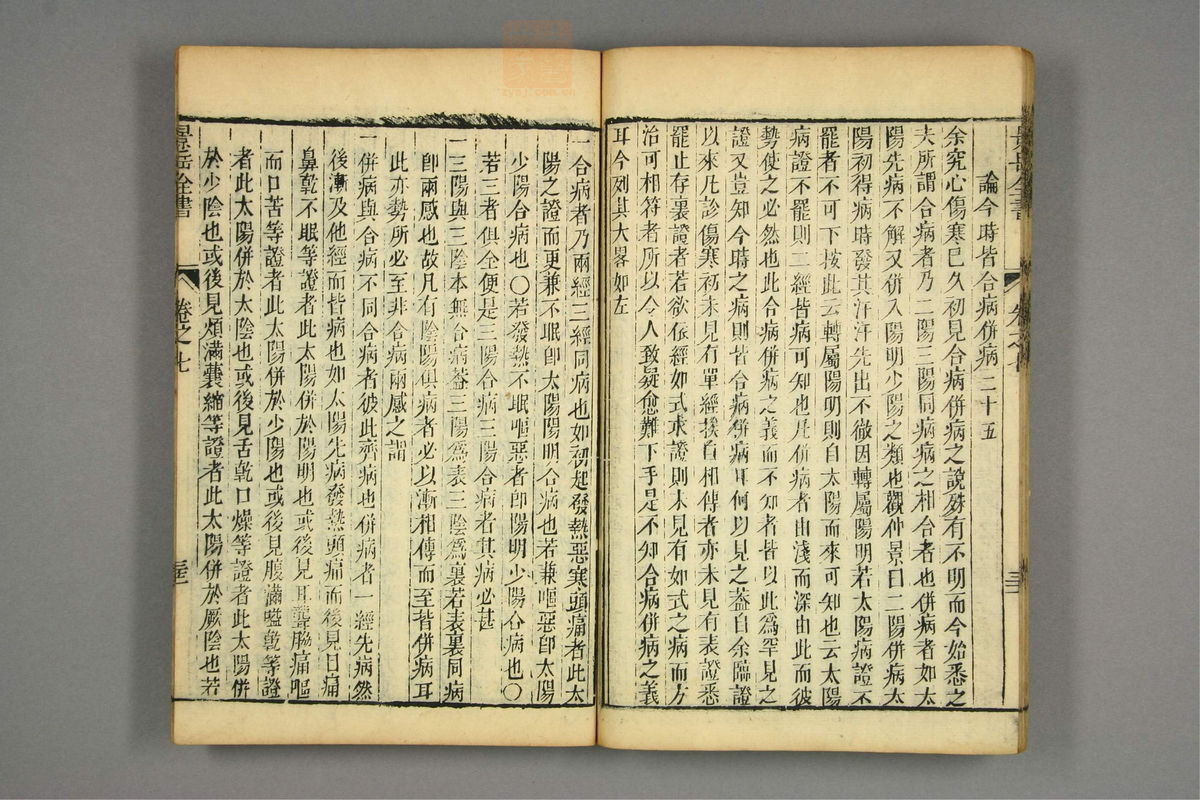 論今時皆合病併病 二十五
余究心傷寒已久初見合病併病之說殊有不明而今始悉之
夫所謂合病者乃二陽三陽同病病之相合者也併病者如太
陽先病不解又併入陽明少陽之類也觀仲景曰二陽併病太
陽初得病時發其汗汗先出不徹因轉屬陽明若太陽病證不
罷者不可下按此云轉屬陽明則自太陽而來可知也云太陽
病證不罷則二經皆病可知也凡併病者由淺而深由此而彼
勢使之必然也此合病併病之義而不知者皆以此為罕見之
證又豈知今時之病則皆合病併病耳何以見之蓋自余臨證
以來凡診傷寒初未見有單經挨次相傳者亦未見有表證悉
罷止存裏證者若欲依經如式求證則未見有如式之病而方
治可相符者所以令人致疑愈難下手是不知合病併病之義
耳今列其大畧如左
一合病者乃兩經三經同病也如初起發熱惡寒頭痛者此太
陽之證而更兼不眠卽太陽陽明合病也若兼嘔惡卽太陽
少陽合病也〇若發熱不眠嘔惡者卽陽明少陽合病也〇
若三者俱全便是三陽合病三陽合病者其病必甚
一三陽與三陰本無合病葢三陽為表三陰為裏若表裏同病
卽兩感也故凡有陰陽俱病者必以漸相傳而至皆併病耳
此亦勢所必至非合病兩感之謂
一併病與合病不同合病者彼此齊病也併病者一經先病然
後漸及他經而皆病也如太陽先病發熱頭痛而後見目痛
鼻乾不眠等證者此太陽併於陽明也或後見耳聾脇痛嘔
而口苦等證者此太陽併於少陽也或後見腹滿嗌乾等證
者此太陽併於太陰也或後見舌乾口燥等證者此太陽併
於少陰也或後見煩滿囊縮等證者此太陽併於厥陰也若
景岳全書
卷之七